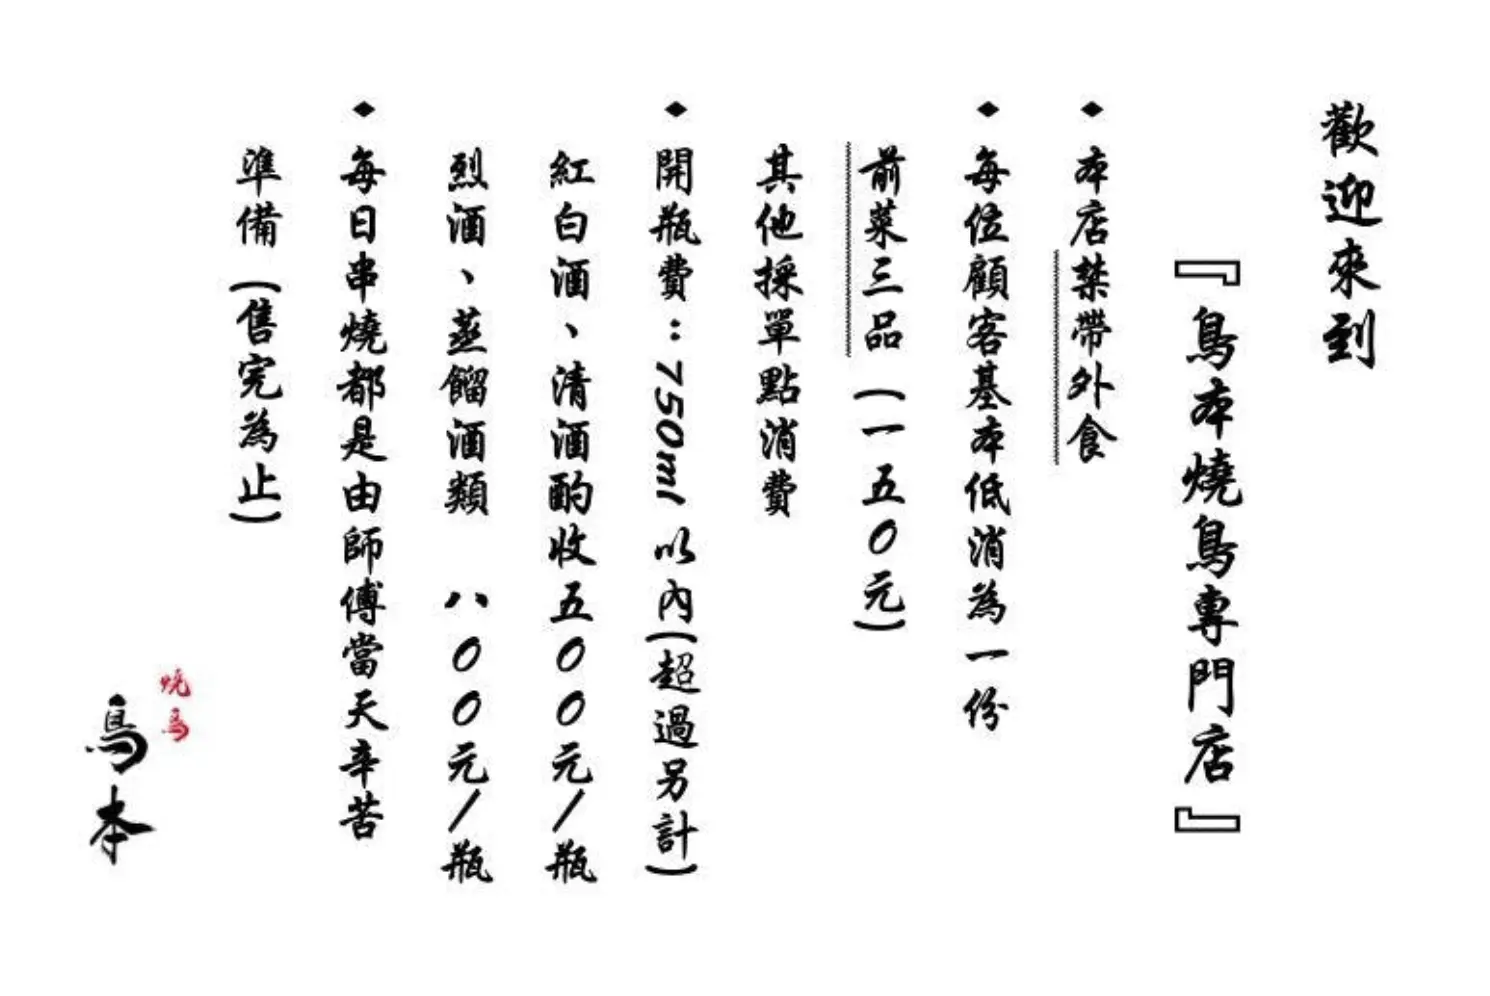 歡迎來到
『鳥本燒鳥專門店』
◆ 本店禁帶外食
◆ 每位顧客基本低消為一份
前菜三品(一五0元)
其他採單點消費
◆ 開瓶費：750ml 以內(超過另計)
紅白酒、清酒酌收五00元/瓶
烈酒、蒸餾酒類 八00元/瓶
◆ 每日串燒都是由師傅當天辛苦
準備(售完為止)
燒鳥
鳥本